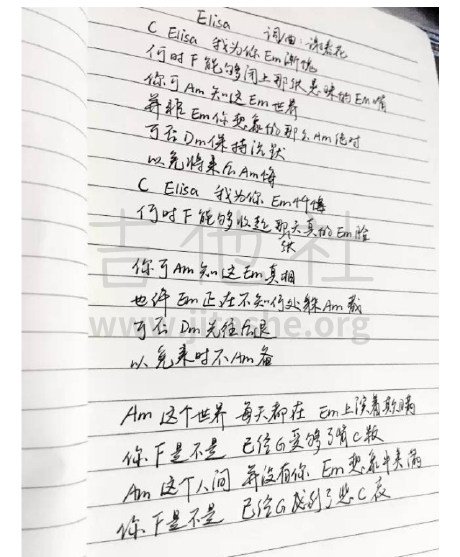 Elisa 词曲:
C Elisa 我为你Em惭愧
何时F能够闭上那张愚昧的Em嘴
你可Am知这Em世界
并非Em你想象的那么Am绝对
可否Dm保持沉默
以免将来后Am悔
C Elisa 我为你Em忏悔
何时F能够收起那天真的Em脸
张
你可Am知这Em真相
也许Em正在不知何处躲Am藏
可否Dm先往后退
以免来时不Am备
Am这个世界 每天都在Em上演着欺瞒
你F是不是 已经G受够了背C叛
Am这个人间 并没有你Em想象中美满
你F是不是 已经G感到了悲C哀
吉他社
www.jitashe.org